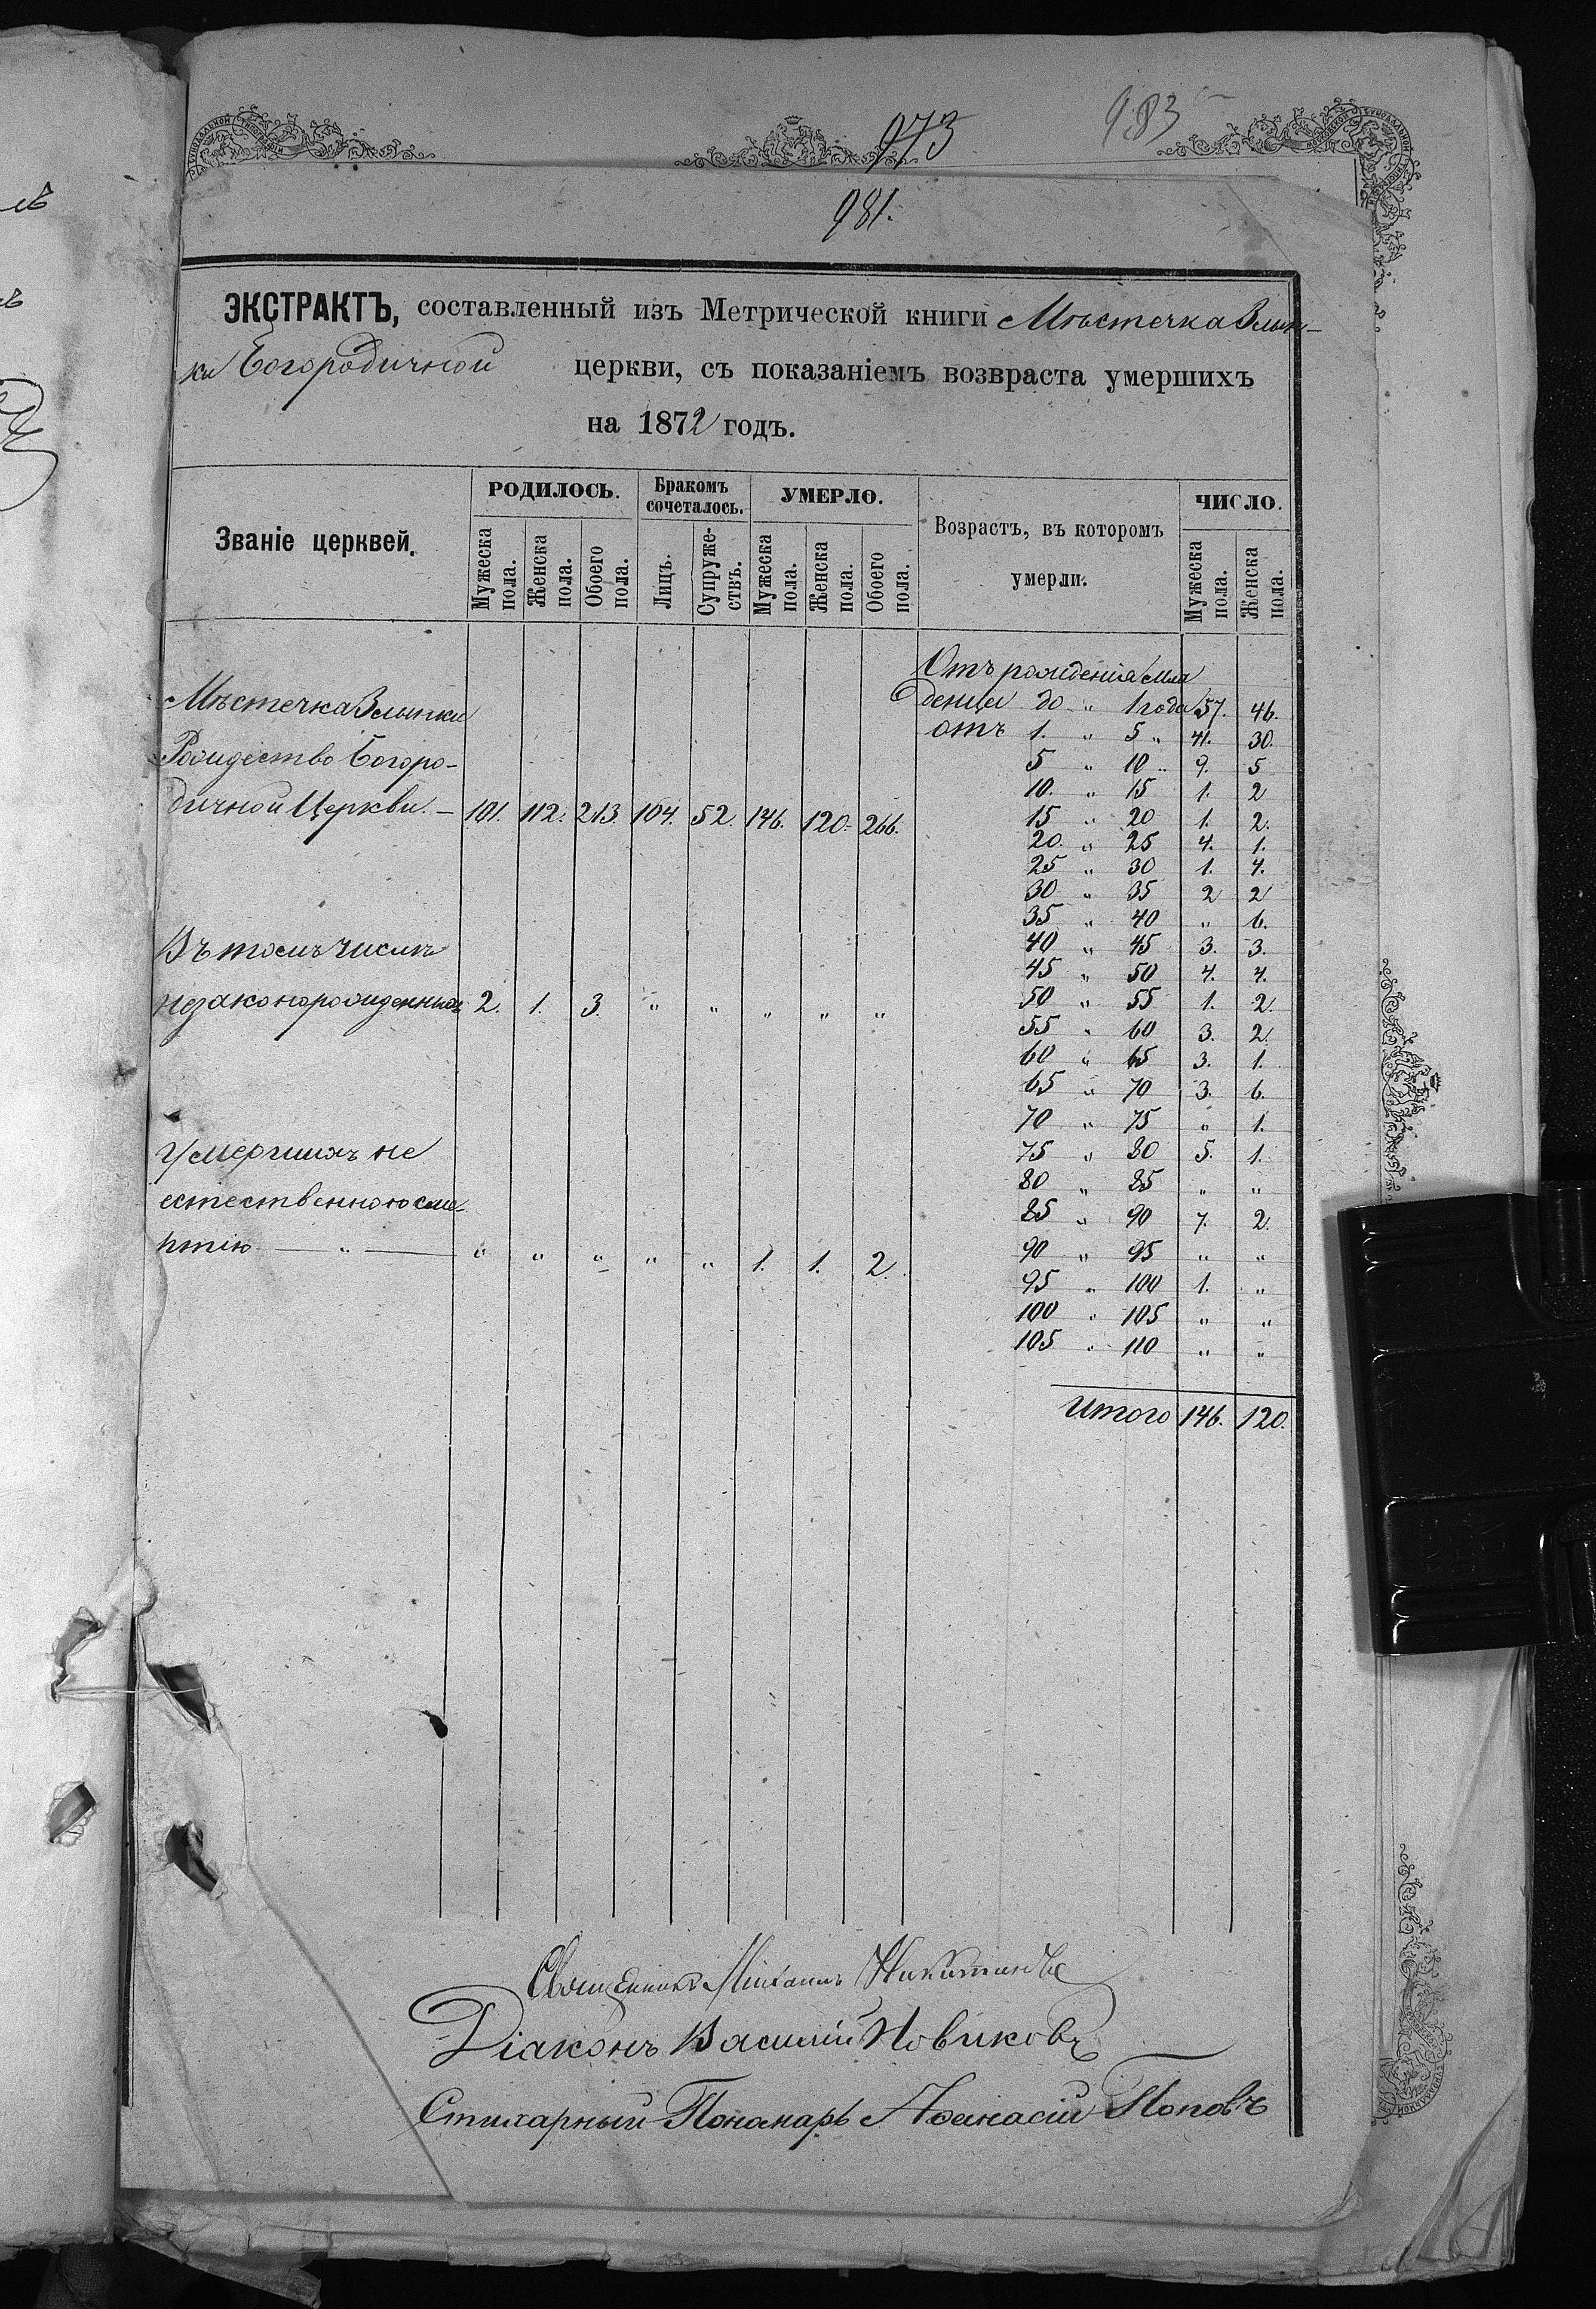 973
983
981.
ЭКСТРАКТЪ, составленный изъ Метрической книги Мѣстечка Злын-
ки Богородичной церкви, съ показаніемъ возвраста умершихъ
на 1872 годъ.
Званіе церквей.
РОДИЛОСЬ.
Бракомъ сочеталось.
УМЕРЛО.
Возрастъ, въ которомъ умерли.
ЧИСЛО.
Мужеска пола.
Женска пола.
Обоего пола.
Лицъ.
Супружествъ.
Мужеска пола.
Женска пола.
Обоего пола.
Мужеска пола.
Женска пола.
Мѣстечка Злынки
Рождество Богоро-
дичной Церкви. – 101. 112. 213. 104. 52. 146. 120. 266.
Въ томъ числѣ
незаконорожденныхъ 2. 1. 3. „ „ „ „ „
Умершихъ не
естественною сме-
ртію — „ — „ „ „ „ „ 1. 1. 2.
Отъ рожденія мла
денцы до „ 1 года 57. 46.
отъ 1. „ 5 „ 41. 30.
5 „ 10 „ 9. 5
10. „ 15 1. 2
15 „ 20 1. 2.
20. „ 25 4. 1.
25 „ 30 1. 4.
30 „ 35 2 2
35 „ 40 „ 6.
40 „ 45 3. 3.
45 „ 50 4. 4.
50 „ 55 1. 2.
55 „ 60 3. 2.
60 „ 65 3. 1.
65 „ 70 3. 6.
70 „ 75 „ 1.
75 „ 80 5. 1.
80 „ 85 „ „
85 „ 90 7. 2.
90 „ 95 „ „
95 „ 100 1. „
100 „ 105 „ „
105 „ 110 „ „
Итого 146. 120.
Священникъ Михаилъ
Діаконъ Василій Новиковъ
Стихарный Пономарь Афанасій Поповъ